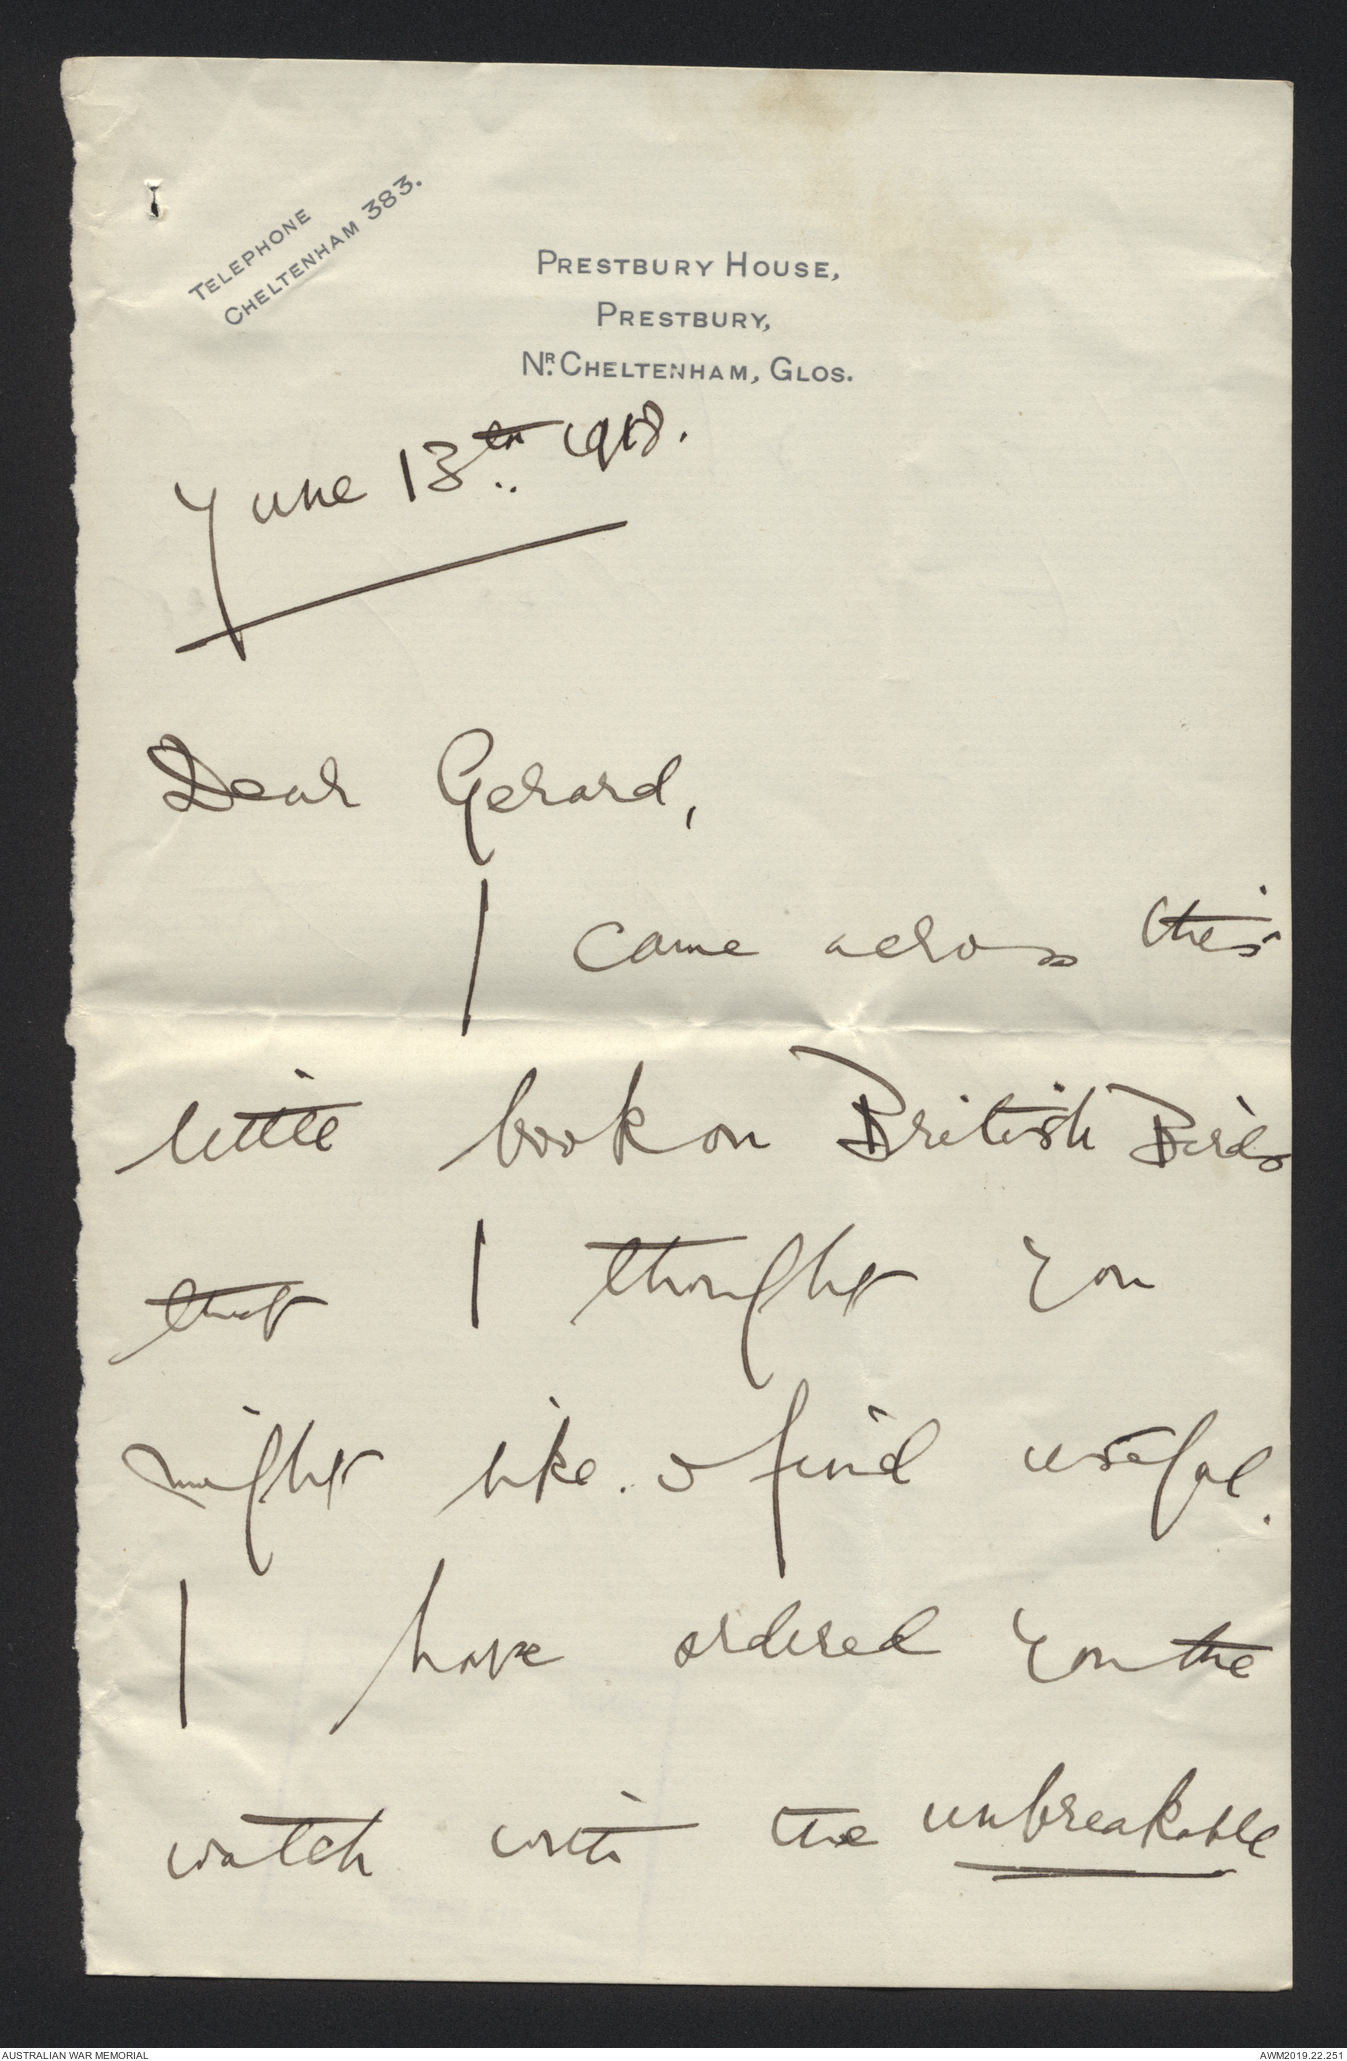 TELEPHONE
CHELTENHAM 383.
PRESTBURY HOUSE,
PRESTBURY,
NR. CHELTENHAM, GLOS.
June 13th 1918.
Dear Gerard,
I came across this
little book on British Birds
that I thought you
might like. & find useful.
I have ordered you the
watch with the unbreakable
AUSTRALIAN WAR MEMORIAL
AWM2019.22.251